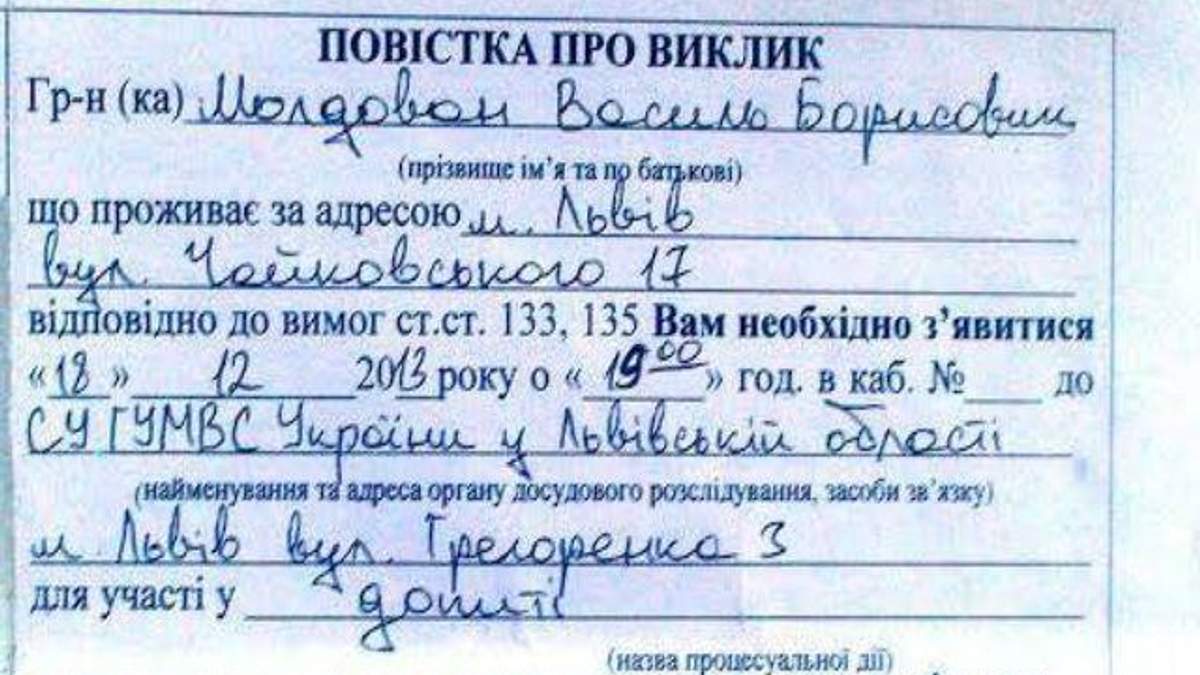 ПОВІСТКА ПРО ВИКЛИК
Гр-н (ка) Молдован Василь Борисович
(прізвище ім’я та по батькові)
що проживає за адресою м. Львів
вул. Чайковського 17
відповідно до вимог ст.ст. 133, 135 Вам необхідно з’явитися
«18» 12 2013 року о «19⁰⁰» год. в каб. №____ до
СУ ГУМВС України у Львівській області
(найменування та адреса органу досудового розслідування, засоби зв’язку)
м. Львів вул. Грегоренка 3
для участі у допиті
(назва процесуальної дії)